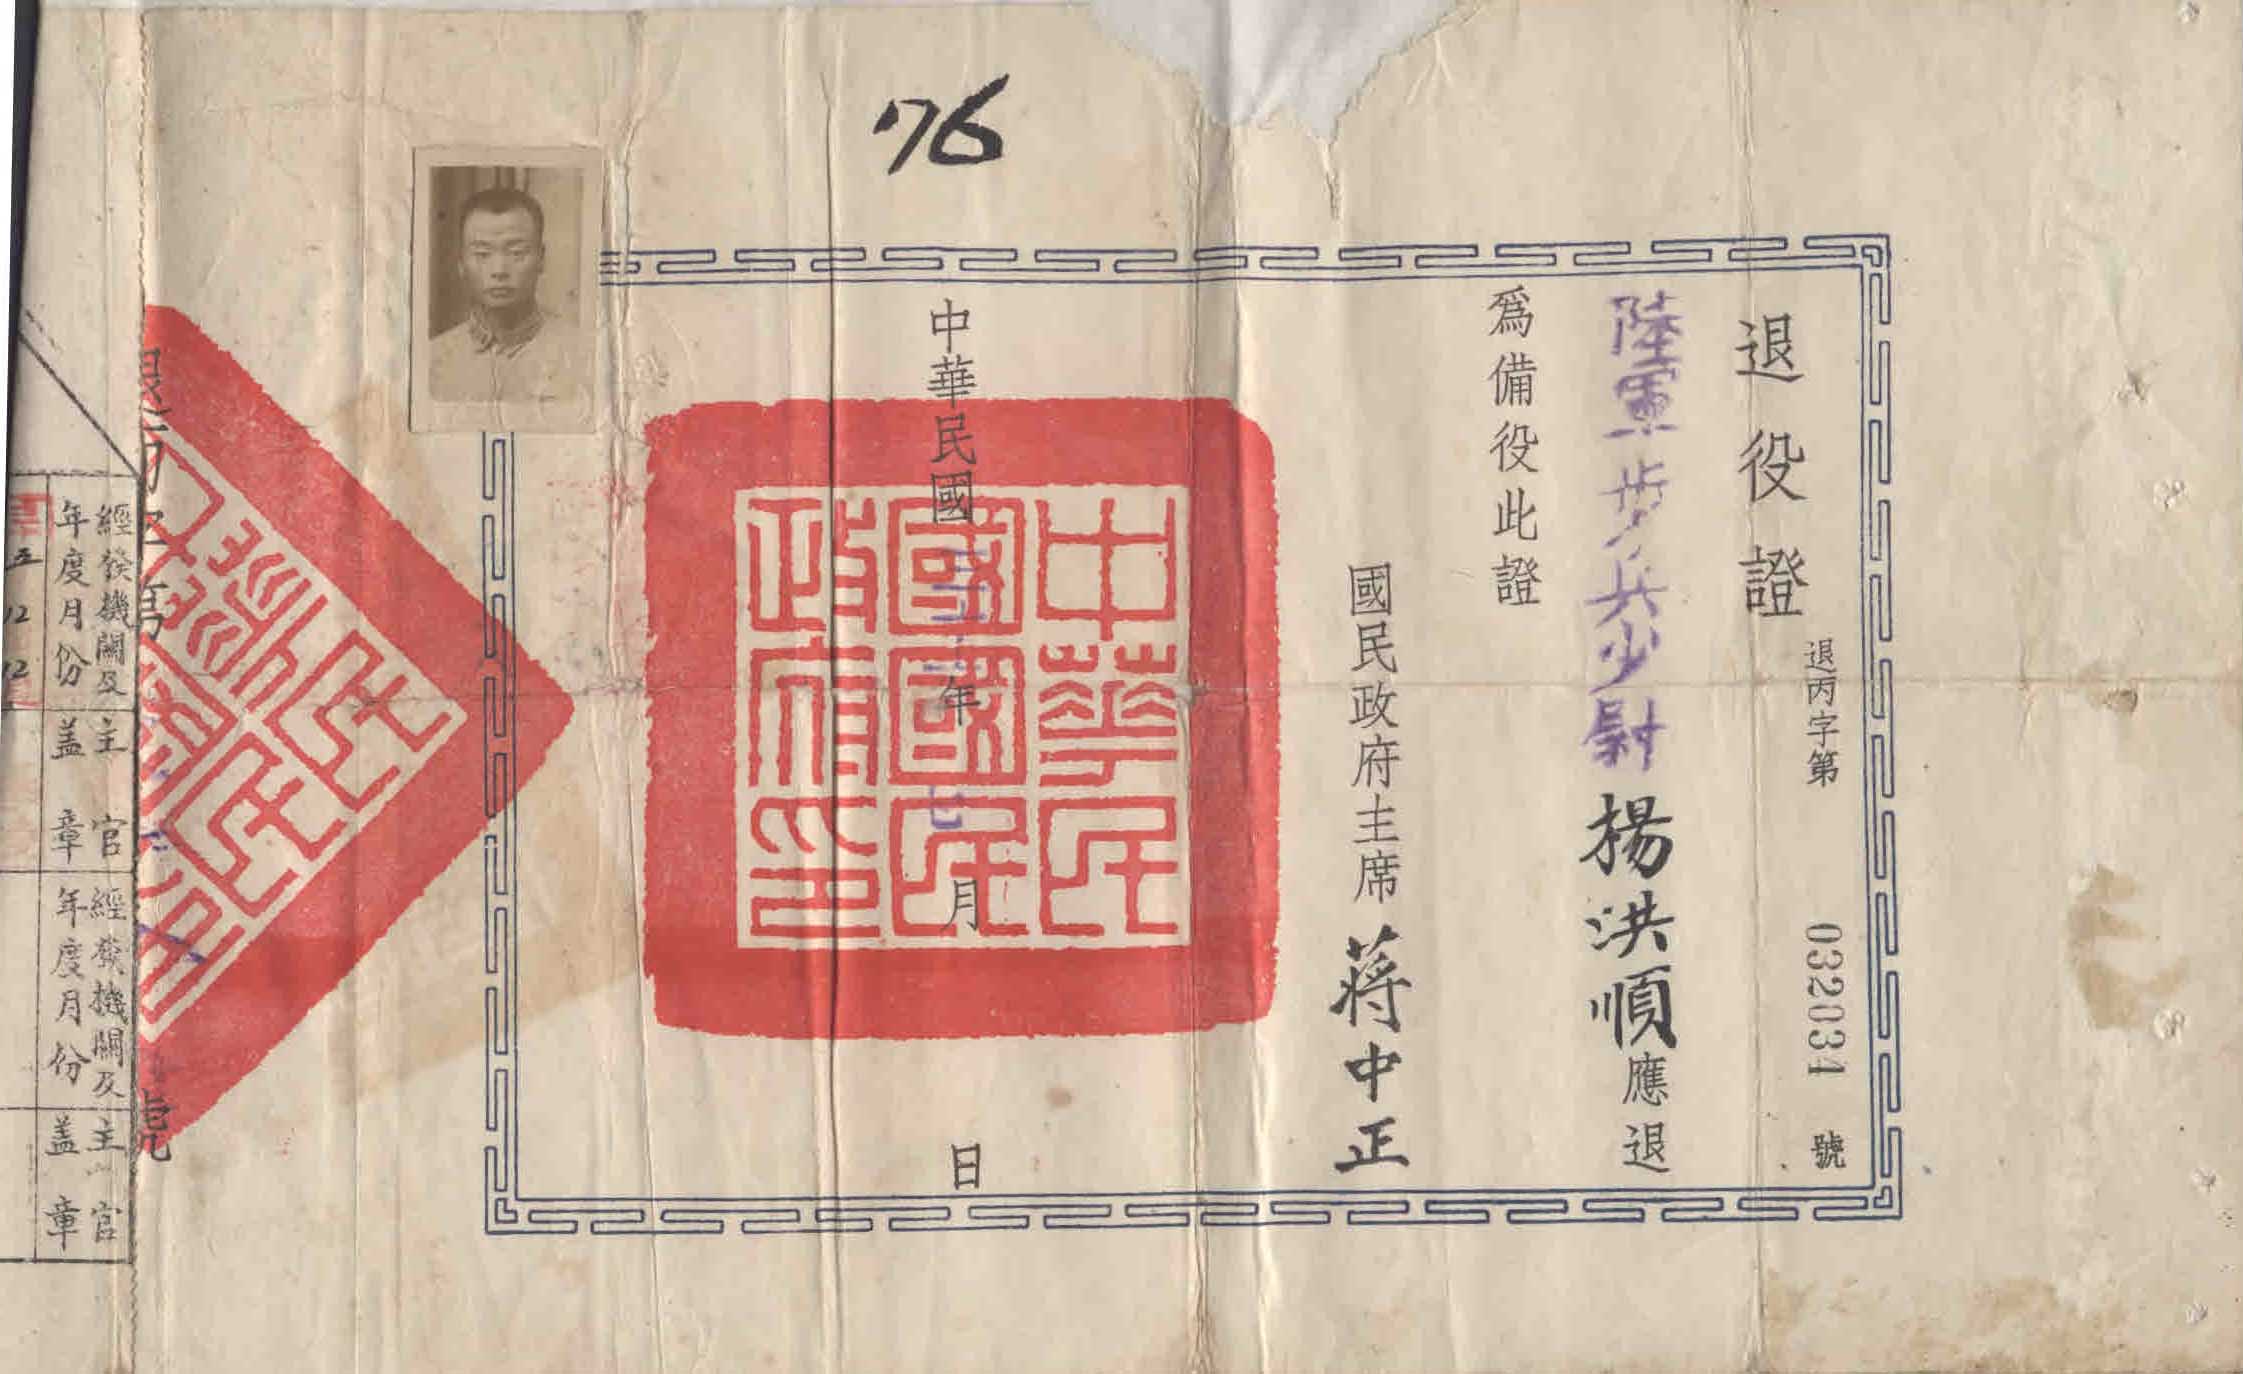 76
退役證
退丙字第 032034 號
陸軍步兵少尉楊洪順應退
爲備役此證
國民政府主席 蔣中正
中華民國三十 年七月 日
中華民
國國民
政府印
號
經發機關及 主官
年度月份 盖章
經發機關及 主官
年度月份 盖章
五
12
12